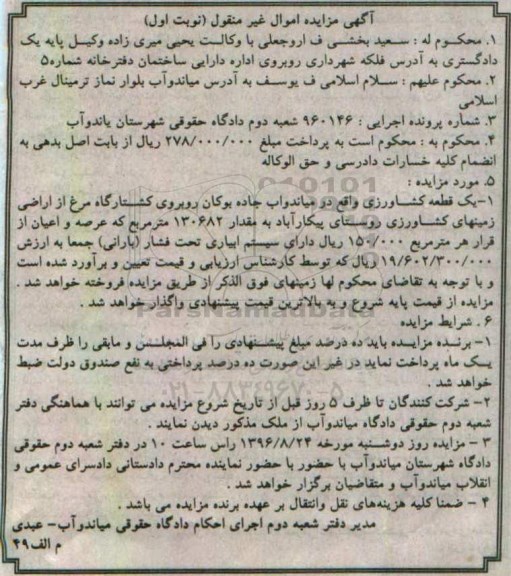 آگهی مزایده اموال غیر منقول (نوبت اول)
۱. محکوم له : سعید بخشی ف اروجعلی با وکالت یحیی میری زاده وکیل پایه یک
دادگستری به آدرس فلکه شهرداری روبروی اداره دارایی ساختمان دفترخانه شماره۵
۲. محکوم علیهم : سلام اسلامی ف یوسف به آدرس میاندوآب بلوار نماز ترمینال غرب
اسلامی
۳. شماره پرونده اجرایی : ۹۶۰۱۴۶ شعبه دوم دادگاه حقوقی شهرستان یاندوآب
۴. محکوم به : محکوم است به پرداخت مبلغ ۲۷۸/۰۰۰/۰۰۰ ریال از بابت اصل بدهی به
انضمام کلیه خسارات دادرسی و حق الوکاله
۵. مورد مزایده :
۱-یک قطعه کشاورزی واقع در میاندواب جاده بوکان روبروی کشتارگاه مرغ از اراضی
زمینهای کشاورزی روستای پیکارآباد به مقدار ۱۳۰۶۸۲ مترمربع که عرصه و اعیان از
قرار هر مترمربع ۱۵۰/۰۰۰ ریال دارای سیستم ابیاری تحت فشار (بارانی) جمعا به ارزش
۱۹/۶۰۲/۳۰۰/۰۰۰ ریال که توسط کارشناس ارزیابی و قیمت تعیین و برآورد شده است
و با توجه به تقاضای محکوم لها زمینهای فوق الذکر از طریق مزایده فروخته خواهد شد .
مزایده از قیمت پایه شروع و به بالاترین قیمت پیشنهادی واگذار خواهد شد .
۶ . شرایط مزایده
۱- برنده مزایده باید ده درصد مبلغ پیشنهادی را فی المجلس و مابقی را ظرف مدت
یک ماه پرداخت نماید در غیر این صورت ده درصد پرداختی به نفع صندوق دولت ضبط
خواهد شد .
۲- شرکت کنندگان تا ظرف ۵ روز قبل از تاریخ شروع مزایده می توانند با هماهنگی دفتر
شعبه دوم حقوقی دادگاه میاندوآب از ملک مذکور دیدن نمایند .
۳ - مزایده روز دوشنبه مورخه ۱۳۹۶/۸/۲۴ راس ساعت ۱۰ در دفتر شعبه دوم حقوقی
دادگاه شهرستان میاندوآب با حضور با حضور نماینده محترم دادستانی دادسرای عمومی و
انقلاب میاندوآب و متقاضیان برگزار خواهد شد .
۴ - ضمنا کلیه هزینه‌های نقل وانتقال بر عهده برنده مزایده می باشد .
مدیر دفتر شعبه دوم اجرای احکام دادگاه حقوقی میاندوآب- عبدی
م الف۴۹